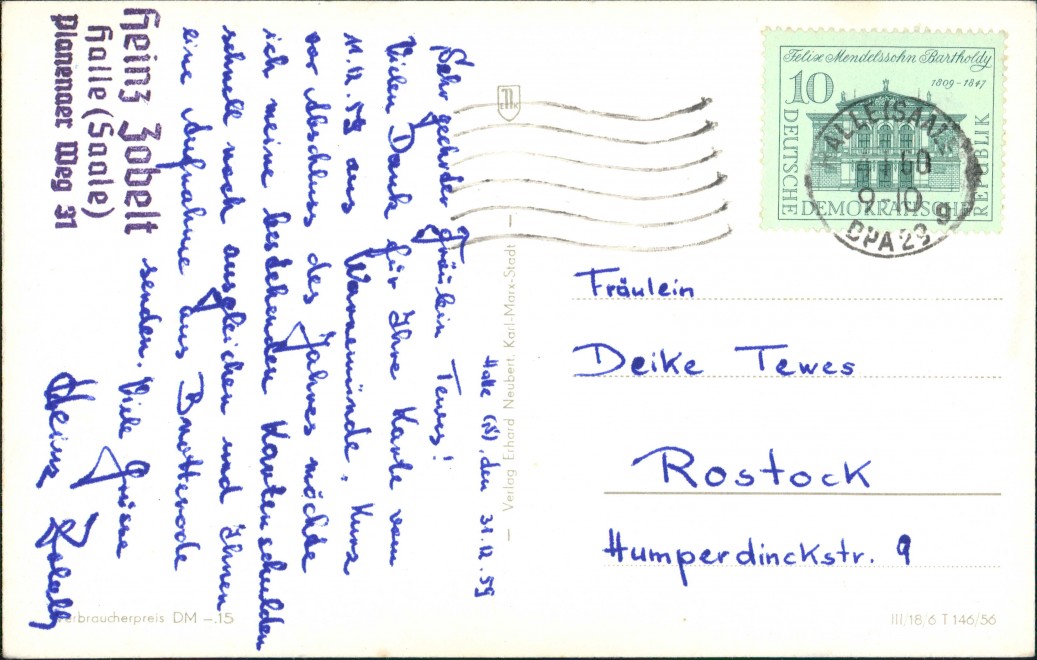 Heinz Zobelt
Halle (Saale)
Planenaer Weg 31
Halle (S), den 31.12.59
Sehr geehrtes Fräulein Tewes!
Vielen Dank für Ihre Karte vom
11.12.59 aus Warnemünde. Kurz
vor Abschluss des Jahres möchte
ich meine bestehenden Kartenschulden
schnell noch ausgleichen und Ihnen
eine Aufnahme aus Brotterode
senden. Viele Grüsse
Heinz Zobelt
Verbraucherpreis DM –.15
– Verlag Erhard Neubert, Karl-Marx-Stadt –
Felix Mendelssohn Bartholdy
1809-1847
10
DEUTSCHE
DEMOKRATISCHE
REPUBLIK
HALLE (SAALE)
60
9-10
g
DPA 29
Fräulein
Deike Tewes
Rostock
Humperdinckstr. 9
III/18/6 T 146/56